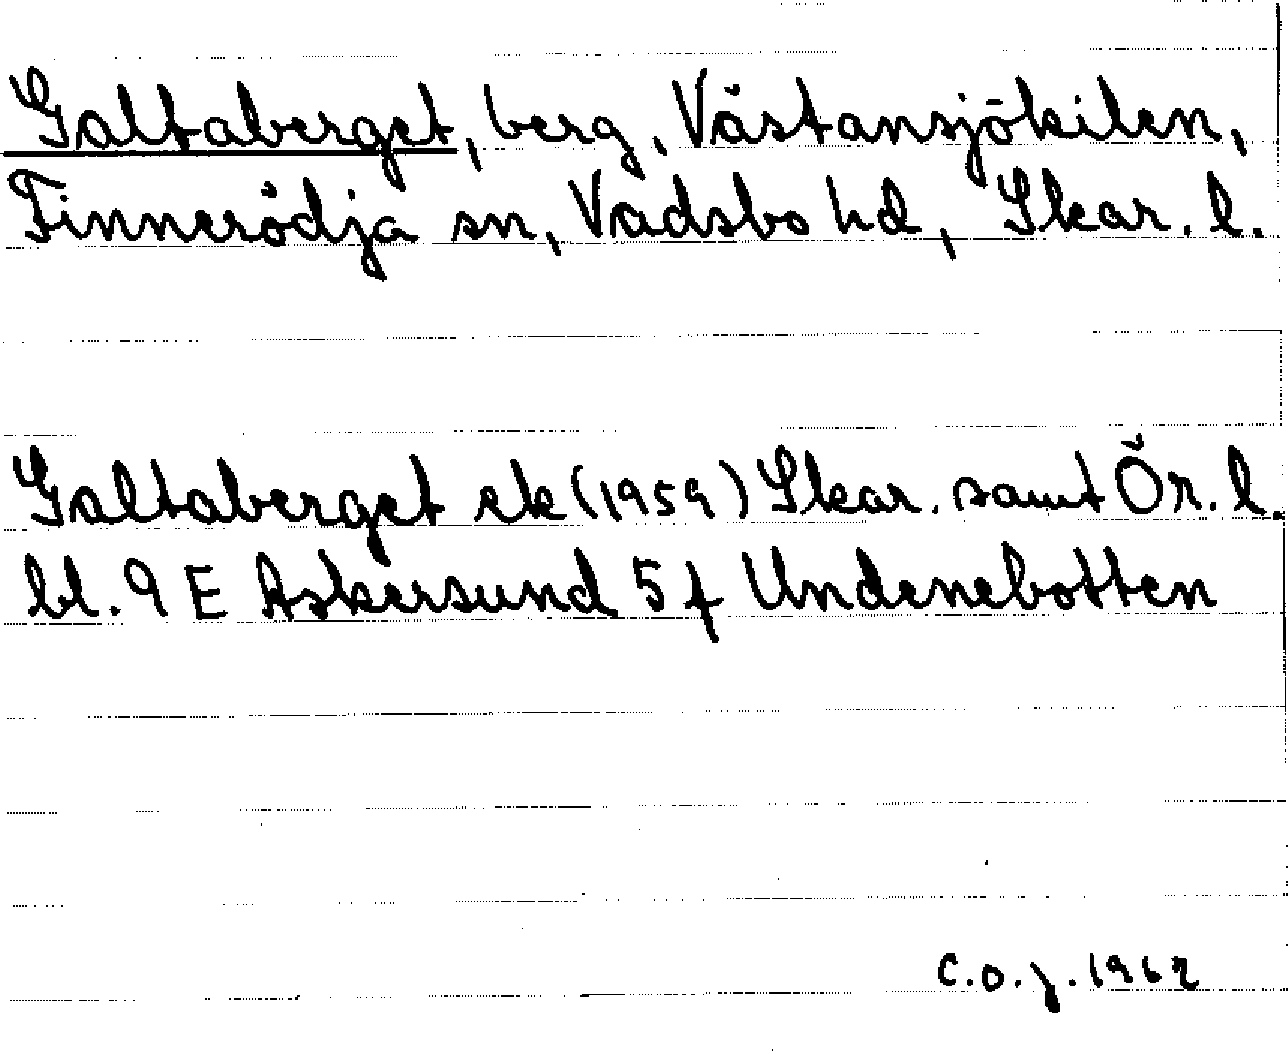 Galtaberget, berg, Västansjökilen,
Finnerödja sn, Vadsbo hd, Skar. l.
Galtaberget ek (1959) Skar. samt Ör. l.
bl. 9 E Askersund 5 f Undenebotten
C.O.J. 1962